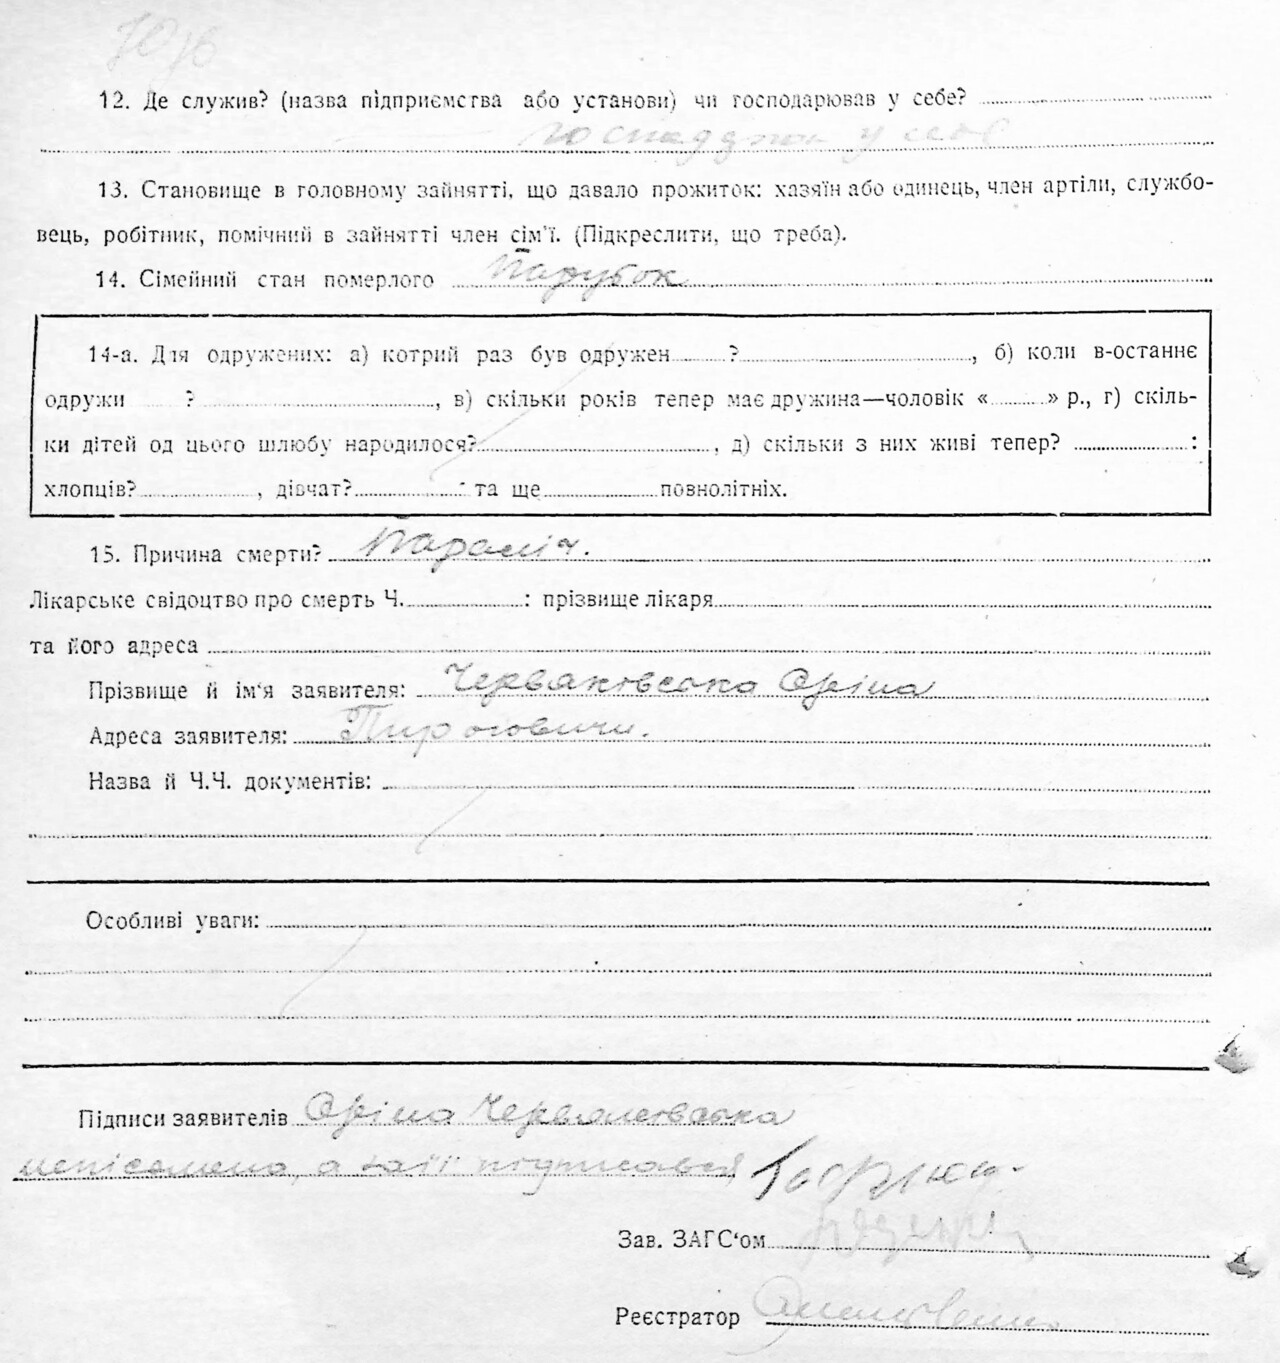 12. Де служив? (назва підприємства або установи) чи господарював у себе?
у себе
13. Становище в головному зайнятті, що давало прожиток: хазяїн або одинець, член артіли, службо-
вець, робітник, помічний в зайнятті член сім'ї. (Підкреслити, що треба).
14. Сімейний стан померлого Парубок
14-а. Для одружених: а) котрий раз був одружен ? , б) коли в-останнє
одружи ? , в) скільки років тепер має дружина—чоловік « » р., г) скіль-
ки дітей од цього шлюбу народилося? , д) скільки з них живі тепер? :
хлопців? , дівчат? : та ще повнолітніх.
15. Причина смерти? Параліч.
Лікарське свідоцтво про смерть Ч. : прізвище лікаря
та його адреса
Прізвище й ім'я заявителя: Черваковська Оріна
Адреса заявителя: Пироговичи.
Назва й Ч.Ч. документів:
Особливі уваги:
Підписи заявителів Оріна Черваковська
неписьмена, а за її підписався
Зав. ЗАГС'ом
Реєстратор